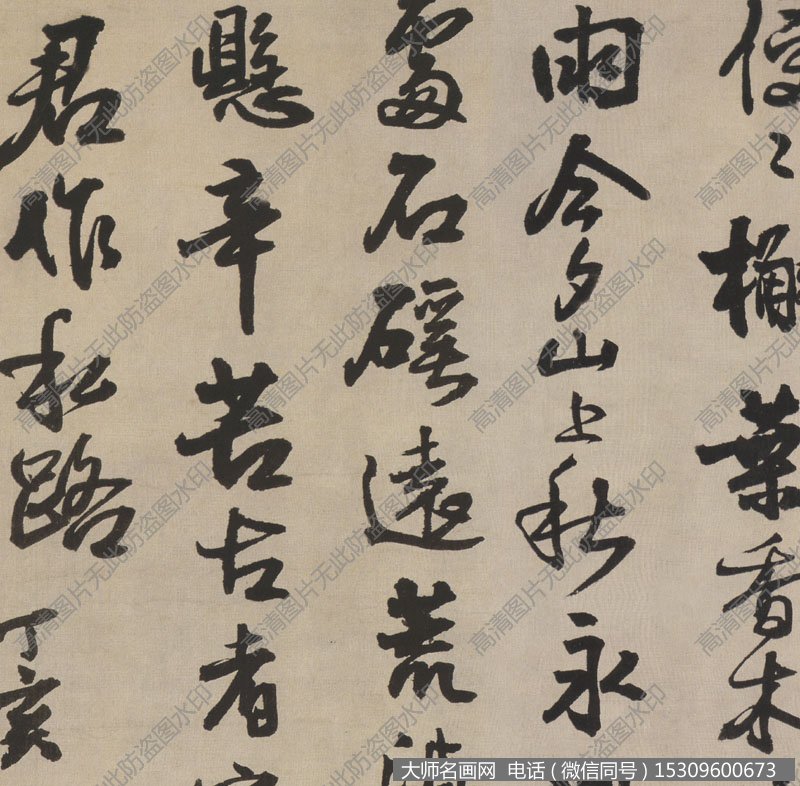 侵〻槲葉香木
雨今夕山上秋永
處石磎遠荒
懸辛苦古者
君作私路 丁亥
高清图片无此防盗图水印
大师名画网 电话（微信同号）15309600673